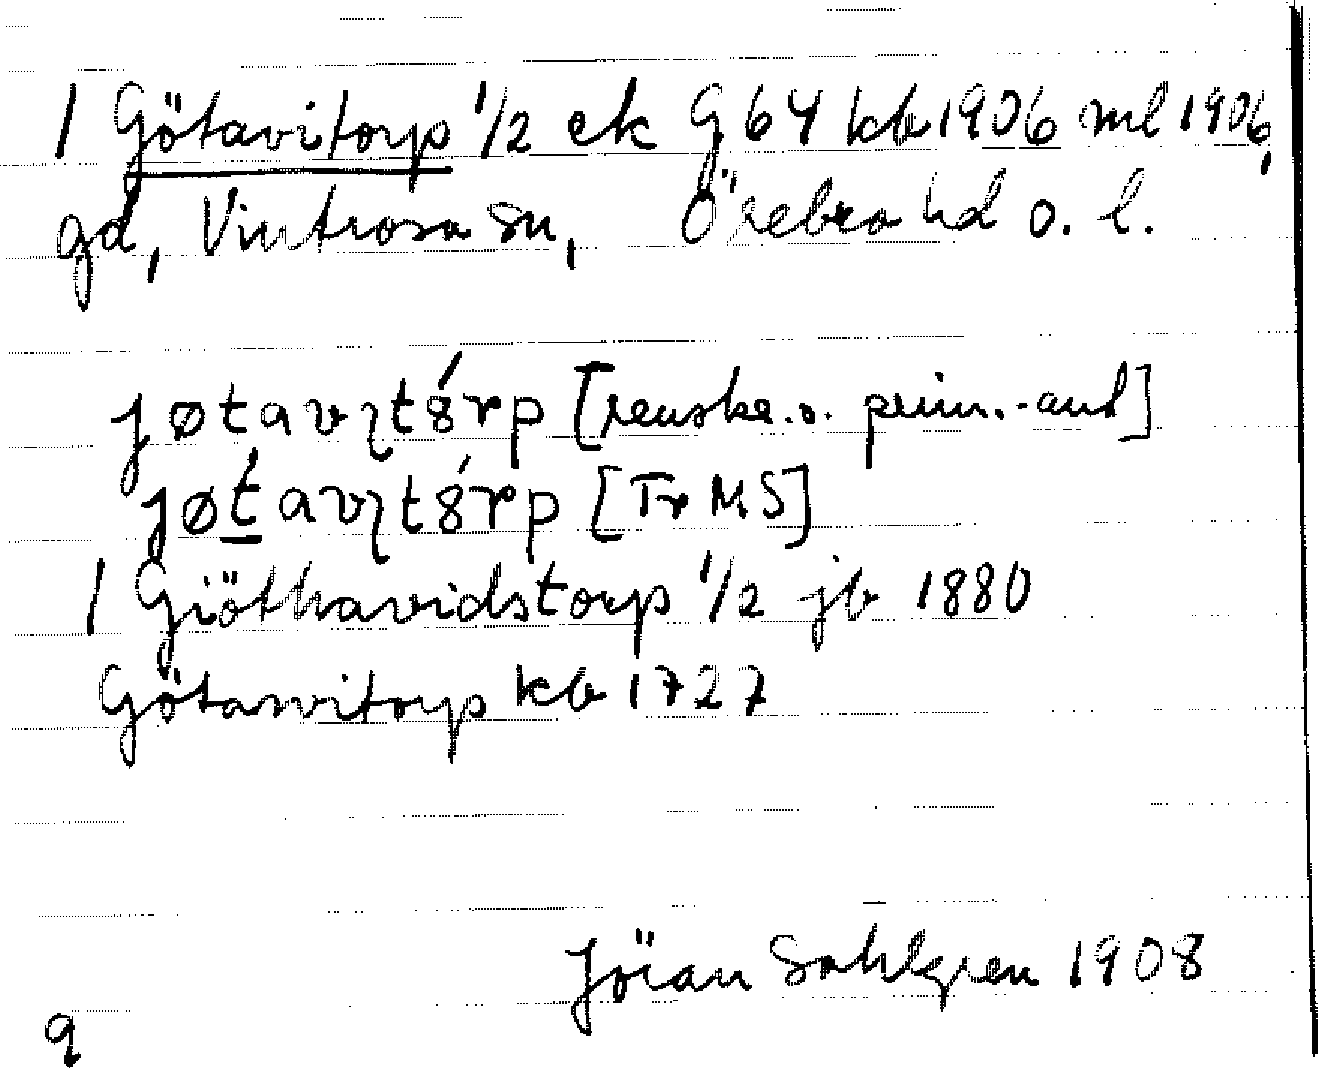 1 Götavitorp 1/2 ek G 64 kb 1906 ml 1906,
gd, Vintrosa sn, Örebro hd ö. l.
jøtavɩtȣ́rp [
jøt́avɩtȣ́rp [Tr MS]
1 Giöthavidstorp 1/2 jb 1880
Götavitorp kb 1727
Jöran Sahlgren 1908